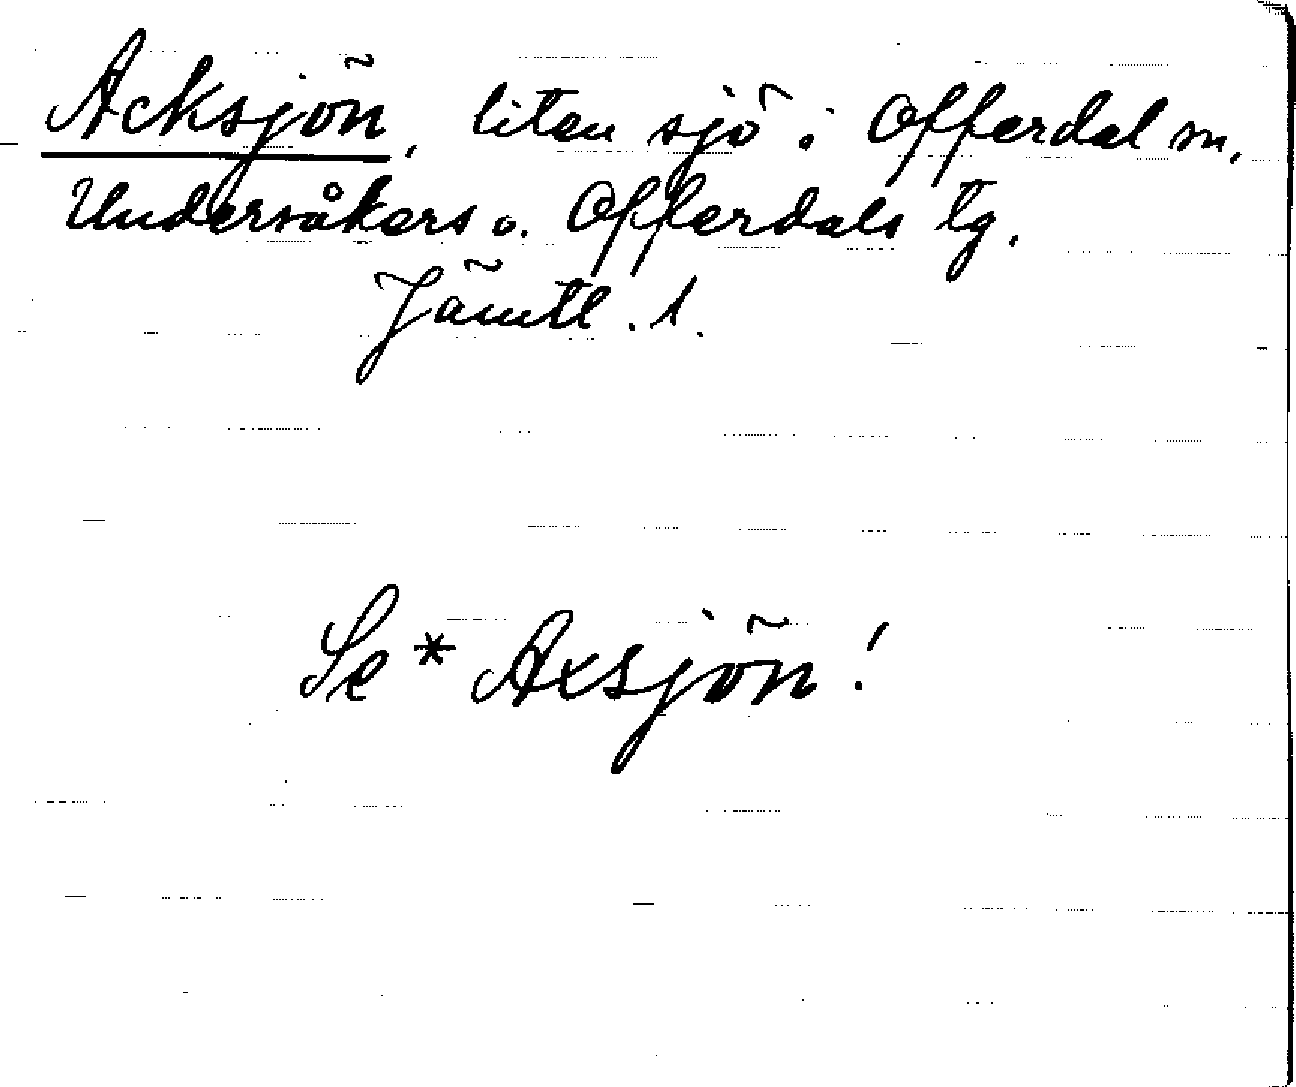 Acksjön, liten sjö i Offerdal sn,
Undersåkers o. Offerdals tg.
Jämtl. l.
Se * Axsjön!